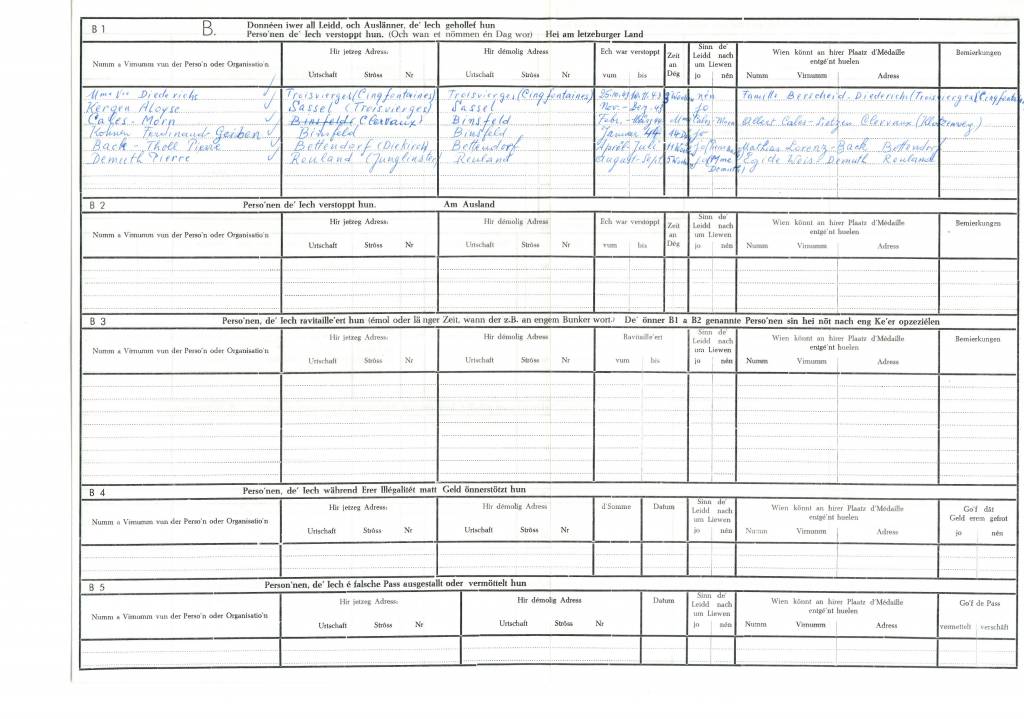 B 1 B. Donnéen iwer all Leidd, och Auslänner, de' Iech gehollef hun
Perso'nen de' Iech verstoppt hun. (Och wan et nömmen én Dag wor) Hei am letzeburger Land
Numm a Virnumm vun der Perso'n oder Organisatio'n Hir jetzeg Adress: Hir démolig Adress Ech war verstoppt Zeit an Dég Sinn de' Leidd nach um Liewen Wien könnt an hirer Plaatz d'Médaille entgé'nt huelen Bemierkungen
Urtschaft Ströss Nr Urtschaft Ströss Nr vum bis jo nén Numm Virnumm Adress
Mme Vve Diederichs Troisvierges (Cinqfontaines) Troisvierges (Cinqfontaines) nén Famille Berscheid-Diederichs Troisvierges Cinqfontaines
Kergen Aloyse Sassel (Troisvierges) Sassel Nov.- Dez. 43 jo
Cales-Morn Binsfeld Clervaux) Binsfeld Albert Cales- Clervaux
Kohnen Ferdinand- Geiben Binsfeld Binsfeld Januar 44 jo
Back - Tholl Pierre Bettendorf (Diekirch) Bettendorf April-Juli Mathias Lorenz-Back Bettendorf
Demuth Pierre Reuland (Junglinster) Reuland August-Sept. 5 Wochen jo (Mme Demuth) Egide Weis-Demuth Reuland
B 2 Perso'nen de' Iech verstoppt hun. Am Ausland
Numm a Virnumm vun der Perso'n oder Organisatio'n Hir jetzeg Adress: Hir démolig Adress Ech war verstoppt Zeit an Dég Sinn de' Leidd nach um Liewen Wien könnt an hirer Plaatz d'Médaille entgé'nt huelen Bemierkungen
Urtschaft Ströss Nr Urtschaft Ströss Nr vum bis jo nén Numm Virnumm Adress
B 3 Perso'nen, de' Iech ravitaille'ert hun (émol oder länger Zeit, wann der z.B. an engem Bunker wort.) De' önner B1 a B2 genannte Perso'nen sin hei nöt nach eng Ke'er opzeziélen
Numm a Virnumm vun der Perso'n oder Organisatio'n Hir jetzeg Adress: Hir démolig Adress Ravitaille'ert Sinn de' Leidd nach um Liewen Wien könnt an hirer Plaatz d'Médaille entgé'nt huelen Bemierkungen
Urtschaft Ströss Nr Urtschaft Ströss Nr vum bis jo nén Numm Virnumm Adress
B 4 Perso'nen, de' Iech während Erer Illégalitét matt Geld önnerstötzt hun
Numm a Virnumm vun der Perso'n oder Organisatio'n Hir jetzeg Adress: Hir démolig Adress d'Somme Datum Sinn de' Leidd nach um Liewen Wien könnt an hirer Plaatz d'Médaille entgé'nt huelen Go'f dät Geld erem gefrot
Urtschaft Ströss Nr Urtschaft Ströss Nr jo nén Numm Virnumm Adress jo nén
B 5 Person'nen, de' Iech é falsche Pass ausgestallt oder vermöttelt hun
Numm a Virnumm vun der Perso'n oder Organisatio'n Hir jetzeg Adress: Hir démolig Adress Datum Sinn de' Leidd nach um Liewen Wien könnt an hirer Plaatz d'Médaille entgé'nt huelen Go'f de Pass
Urtschaft Ströss Nr Urtschaft Ströss Nr jo nén Numm Virnumm Adress vermettelt verschäft